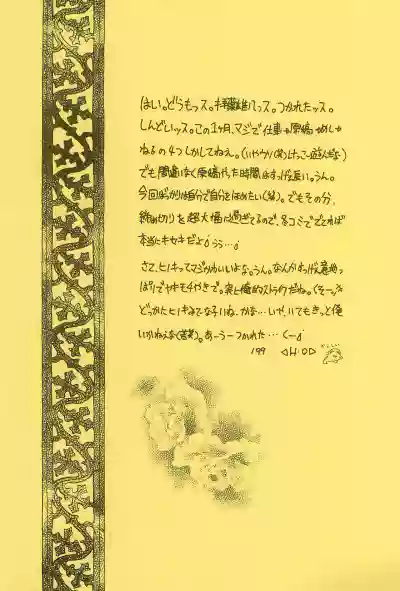 はい。どうもっス。 っス。つかれたッス。
しんどいッス。この1ヶ月、マジで仕事か原稿かめしか
ねるの4つしかしてねえ。(いやウソ(笑)けっこー遊んだな)
でも間違いなく原稿やった時間はすっげえ長い。うん。
今回ばっかりは自分で自分をほめたい(笑)。でもその分、
締め切りを超大幅に過ぎてるので、冬コミででてれば
本当にキセキだよ うぅ…
さて、ヒノキってマジかわいいよな。うん。なんかすっげえ意地っ
ぱりでヤキモチやきで。実に俺的ストライクだね。くそーっ
どっかにヒノキみてーな子いね-かな…いや、いてもきっと俺
いかねえな(苦笑)。あーうーつかれた…くー
'99 H.O